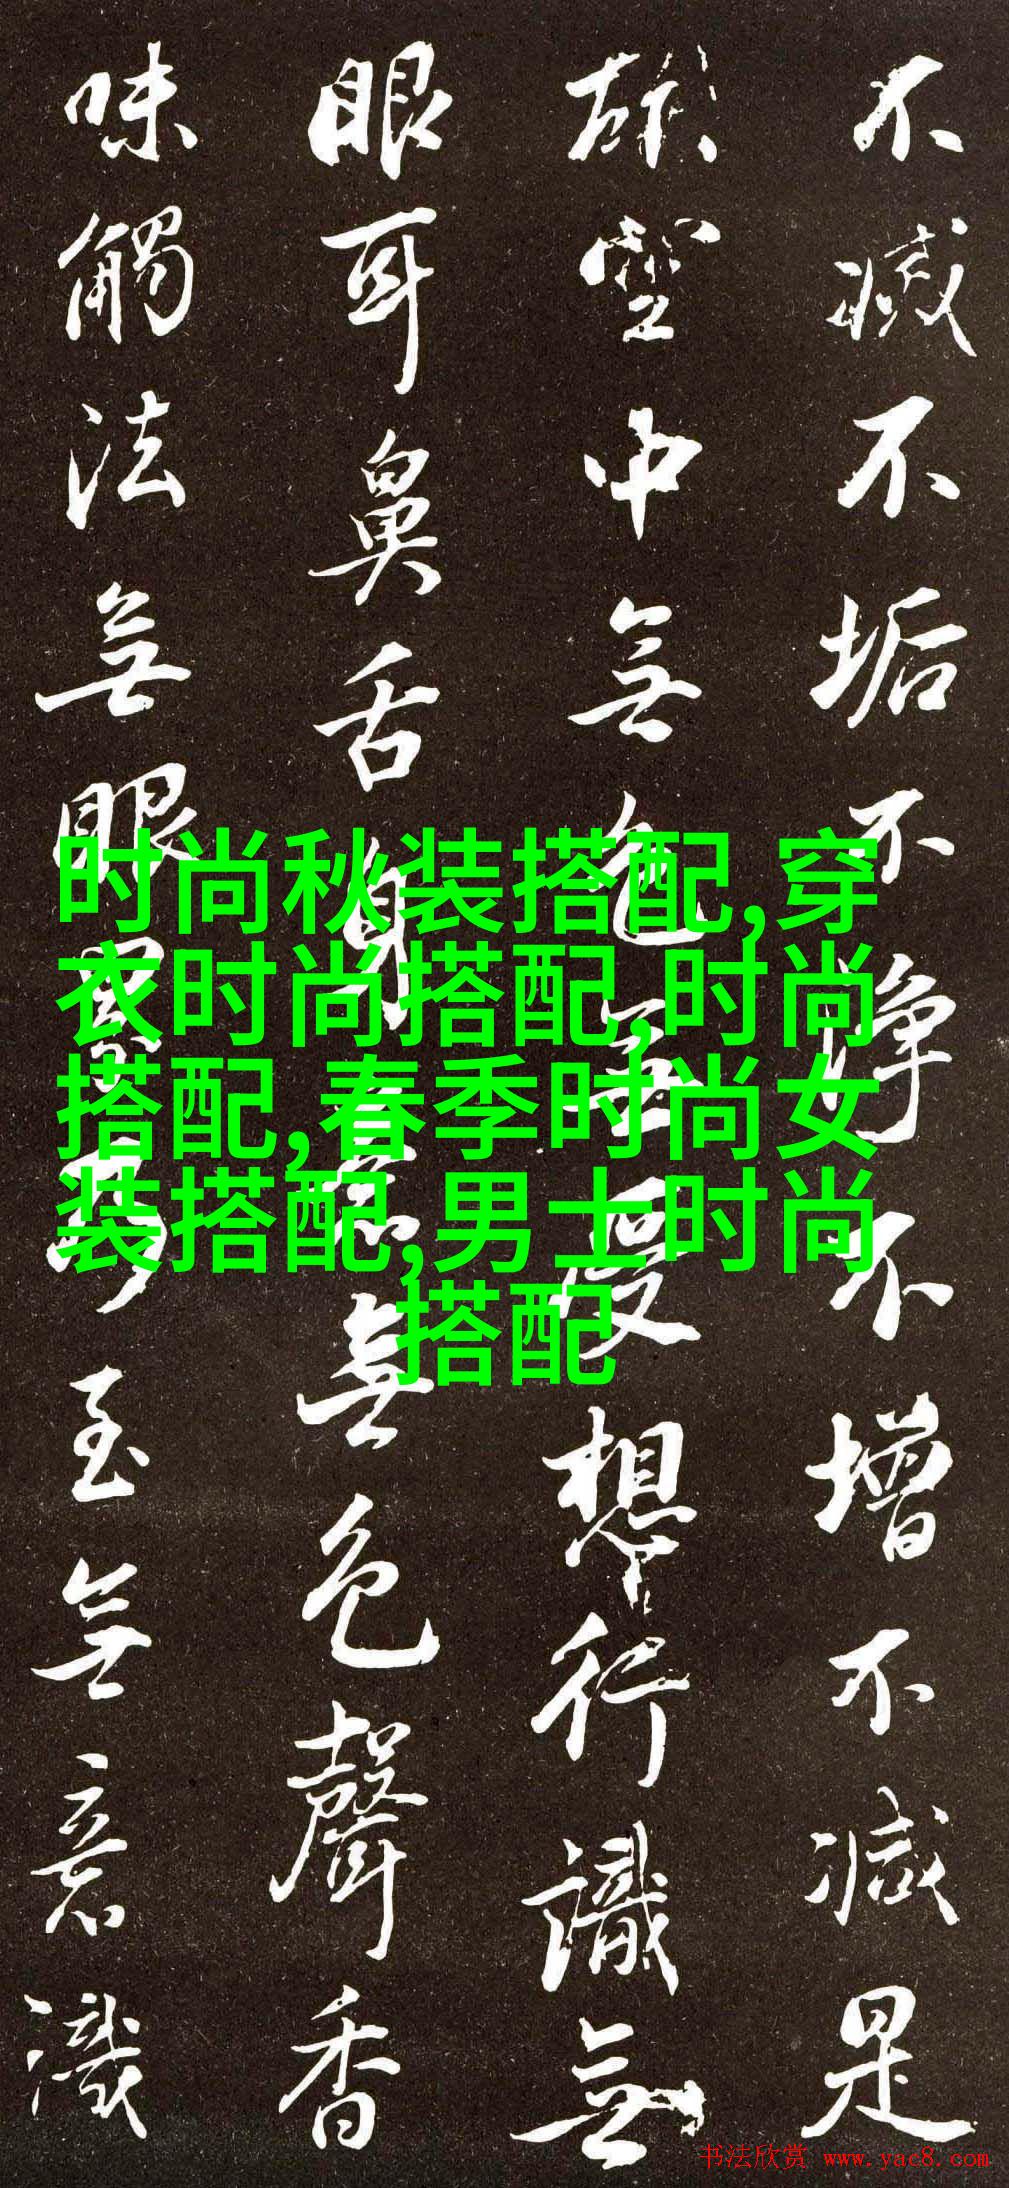 不滅不垢不淨不增不減是
故空中無色無受想行識無
眼耳鼻舌身意無色聲香
味觸法無眼界乃至無意識
时尚秋装搭配,穿
衣时尚搭配,时尚
搭配,春季时尚女
装搭配,男士时尚
搭配
书法欣赏 www.yac8.com